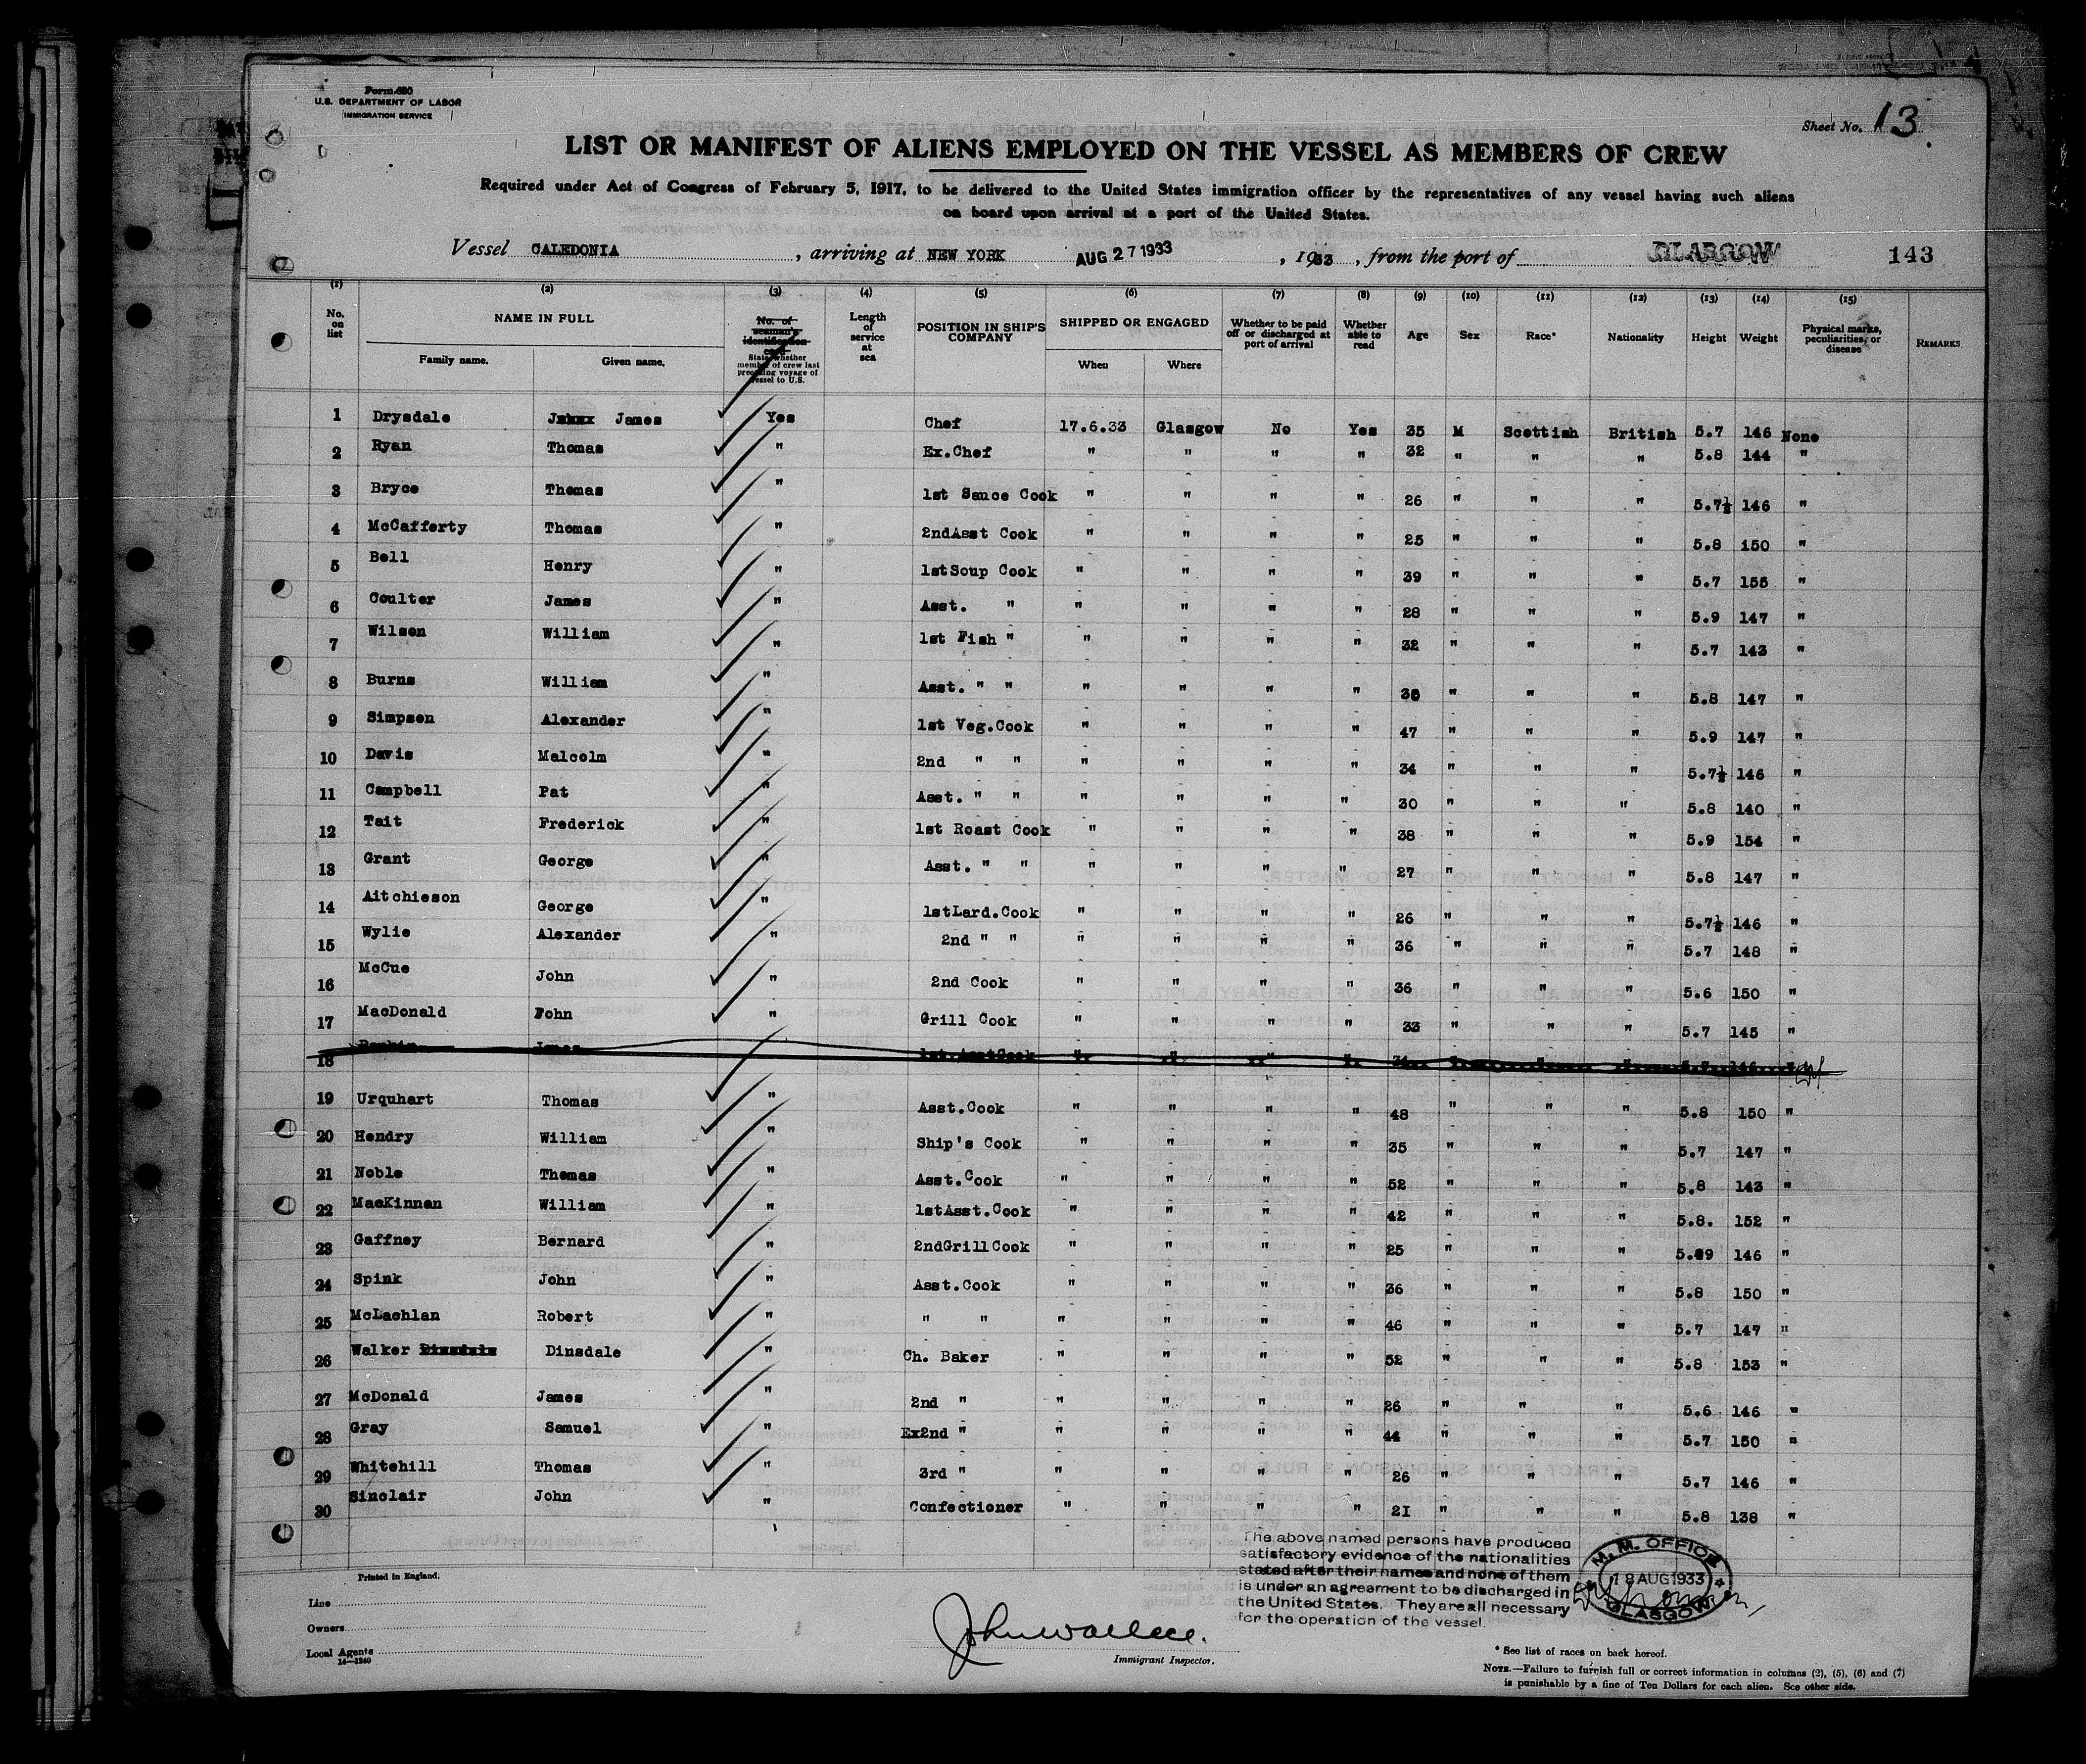 Form 680
U.S. DEPARTMENT OF LABOR
IMMIGRATION SERVICE
Sheet No. 13
LIST OR MANIFEST OF ALIENS EMPLOYED ON THE VESSEL AS MEMBERS OF CREW
Required under Act of Congress of February 5, 1917, to be delivered to the United States immigration officer by the representatives of any vessel having such aliens
on board upon arrival at a port of the United States.
Vessel CALEDONIA, arriving at NEW YORK AUG 27 1933, 1933, from the port of GLASGOW 143
(1) (2) (3) (4) (5) (6) (7) (8) (9) (10) (11) (12) (13) (14) (15)
No. on list NAME IN FULL Family name. Given name. No. of seaman's identification card State whether member of crew last preceding voyage of vessel to U.S. Length of service at sea POSITION IN SHIP'S COMPANY SHIPPED OR ENGAGED When Where Whether to be paid off or discharged at port of arrival Whether able to read Age Sex Race* Nationality Height Weight Physical marks, peculiarities, or disease REMARKS
1 Drysdale James Yes Chef 17.6.33 Glasgow No Yes 35 M Scottish British 5.7 146 None
2 Ryan Thomas " Ex.Chef " " " " 32 " " " 5.8 144 "
3 Bryce Thomas " 1st Sauce Cook " " " " 26 " " " 5.7½ 146 "
4 McCafferty Thomas " 2ndAsst Cook " " " " 25 " " " 5.8 150 "
5 Bell Henry " 1stSoup Cook " " " " 39 " " " 5.7 155 "
6 Coulter James " Asst. " " " " " 28 " " " 5.9 147 "
7 Wilson William " 1st Fish " " " " " 32 " " " 5.7 143 "
8 Burns William " Asst. " " " " " " " " " 5.8 147 "
9 Simpson Alexander " 1st Veg.Cook " " " " 47 " " " 5.9 147 "
10 Davis Malcolm " 2nd " " " " " " 34 " " " 5.7½ 146 "
11 Campbell Pat " Asst. " " " " " " 30 " " " 5.8 140 "
12 Tait Frederick " 1st Roast Cook " " " " 38 " " " 5.9 154 "
13 Grant George " Asst. " " " " " " 27 " " " 5.8 147 "
14 Aitchieson George " 1stLard.Cook " " " " 26 " " " 5.7½ 146 "
15 Wylie Alexander " 2nd " " " " " " 36 " " " 5.7 148 "
16 McCue John " 2nd Cook " " " " 36 " " " 5.6 150 "
17 MacDonald John " Grill Cook " " " " 33 " " " 5.7 145 "
18 James 1st AsstCook " " " "
19 Urquhart Thomas " Asst.Cook " " " " 48 " " " 5.8 150 "
20 Hendry William " Ship's Cook " " " " 35 " " " 5.7 147 "
21 Noble Thomas " Asst.Cook " " " " 52 " " " 5.8 143 "
22 MacKinnon William " 1stAsst.Cook " " " " 42 " " " 5.8. 152 "
23 Gaffney Bernard " 2ndGrillCook " " " " 25 " " " 5.9 146 "
24 Spink John " Asst.Cook " " " " 36 " " " 5.8 150 "
25 McLachlan Robert " " " " " " " 46 " " " 5.7 147 "
26 Walker Dinsdale Dinsdale " Ch. Baker " " " " 52 " " " 5.8 153 "
27 McDonald James " 2nd " " " " " 26 " " " 5.6 146 "
28 Gray Samuel " Ex2nd " " " " " 44 " " " 5.7 150 "
29 Whitehill Thomas " 3rd " " " " " 26 " " " 5.7 146 "
30 Sinclair John " Confectioner " " " " 21 " " " 5.8 138 "
The above named persons have produced
satisfactory evidence of the nationalities
stated after their names and none of them
is under an agreement to be discharged in
the United States. They are all necessary
for the operation of the vessel.
M. M. OFFICE
18 AUG 1933
GLASGOW
Printed in England.
Line
Owners
Local Agents
14—1240
John Wallace.
Immigrant Inspector.
* See list of races on back hereof.
NOTE.—Failure to furnish full or correct information in columns (2), (5), (6) and (7)
is punishable by a fine of Ten Dollars for each alien. See other side.